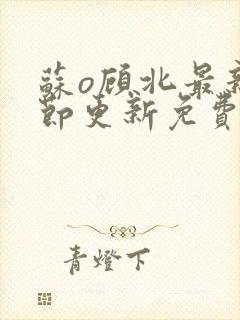 蘇o顾北最新
節更新免費
青燈下